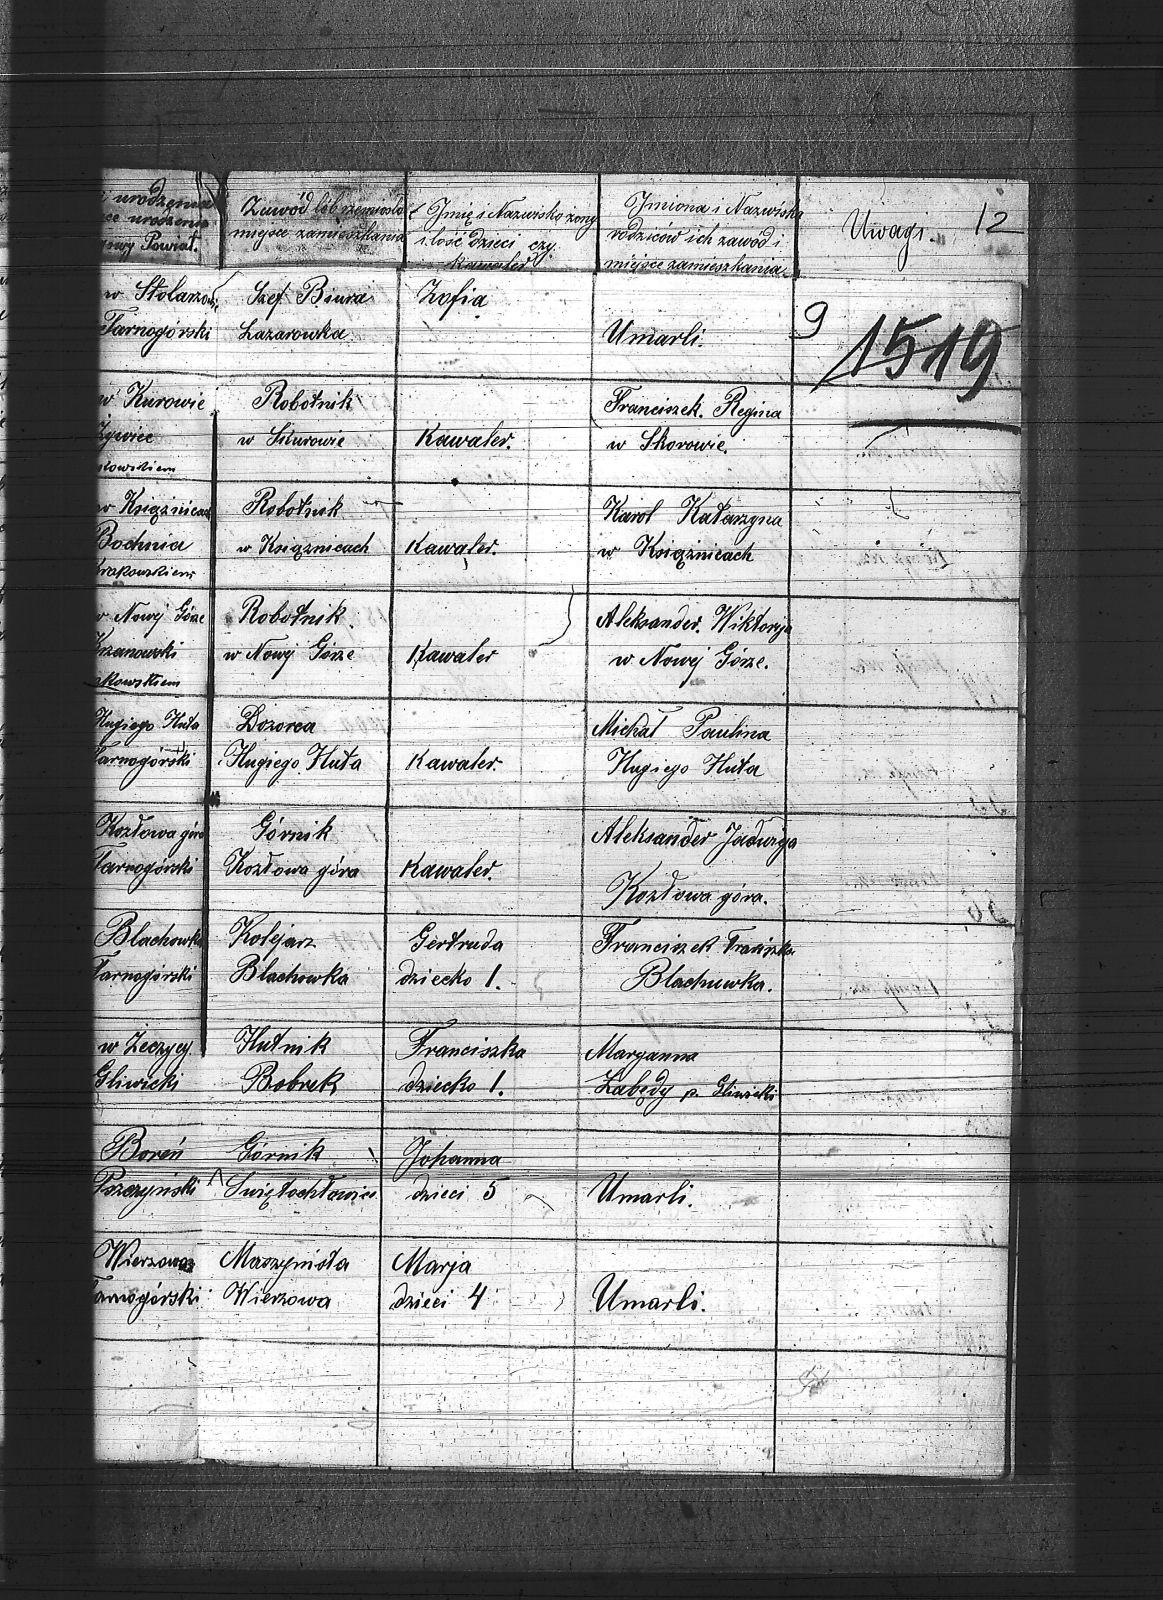 i urodzenia
ce urodzenia
Powiat.
Zawód lub rzemiosło
miejsce zamieszkania
Imię i Nazwisko żony
ilość dzieci czy
Kawaler
Imiona i Nazwiska
rodziców ich zawód i
miejsce zamieszkania
Uwagi.
12
w Stolarzow
Szef Biura
Zofia
9
Tarnogórski
Lazarowka
Umarli.
1519
w Kurowie
Robotnik
Franciszek. Regina
Żywiec
Kawaler.
w Skorowie.
w Książnicach
Robotnik
Karol Katarzyna
Bochnia
w Książnicach
Kawaler.
w Książnicach
krakowskiem
w Nowej Górze
Robotnik.
Aleksander. Wiktorja
Krzanowski
w Nowej Górze
Kawaler
w Nowej Górze.
akowskiem
Hugiego Huta
Dozorca
Michał Paulina
Tarnogórski
Hugiego Huta
Kawaler.
Hugiego Huta
Kozłowa góra
Górnik
Aleksander Jadwiga
Tarnogórski
Kozłowa góra
Kawaler.
Kozłowa góra.
Blachowka
Kolejarz
Gertruda
Franciszek
Tarnogórski
Blachowka
dziecko 1.
Blachuwka.
w Zeczycy
Hutnik
Franciszka
Maryanna
Gliwicki
Bobrek
dziecko 1.
Łabędy p. Gliwicki
Boreń
Górnik
Johanna
Pszczyński
Świętochłowice
dzieci 5
Umarli.
Wierzowa
Maszynista
Marja
Tarnogórski
Wierzowa
dzieci 4
Umarli.